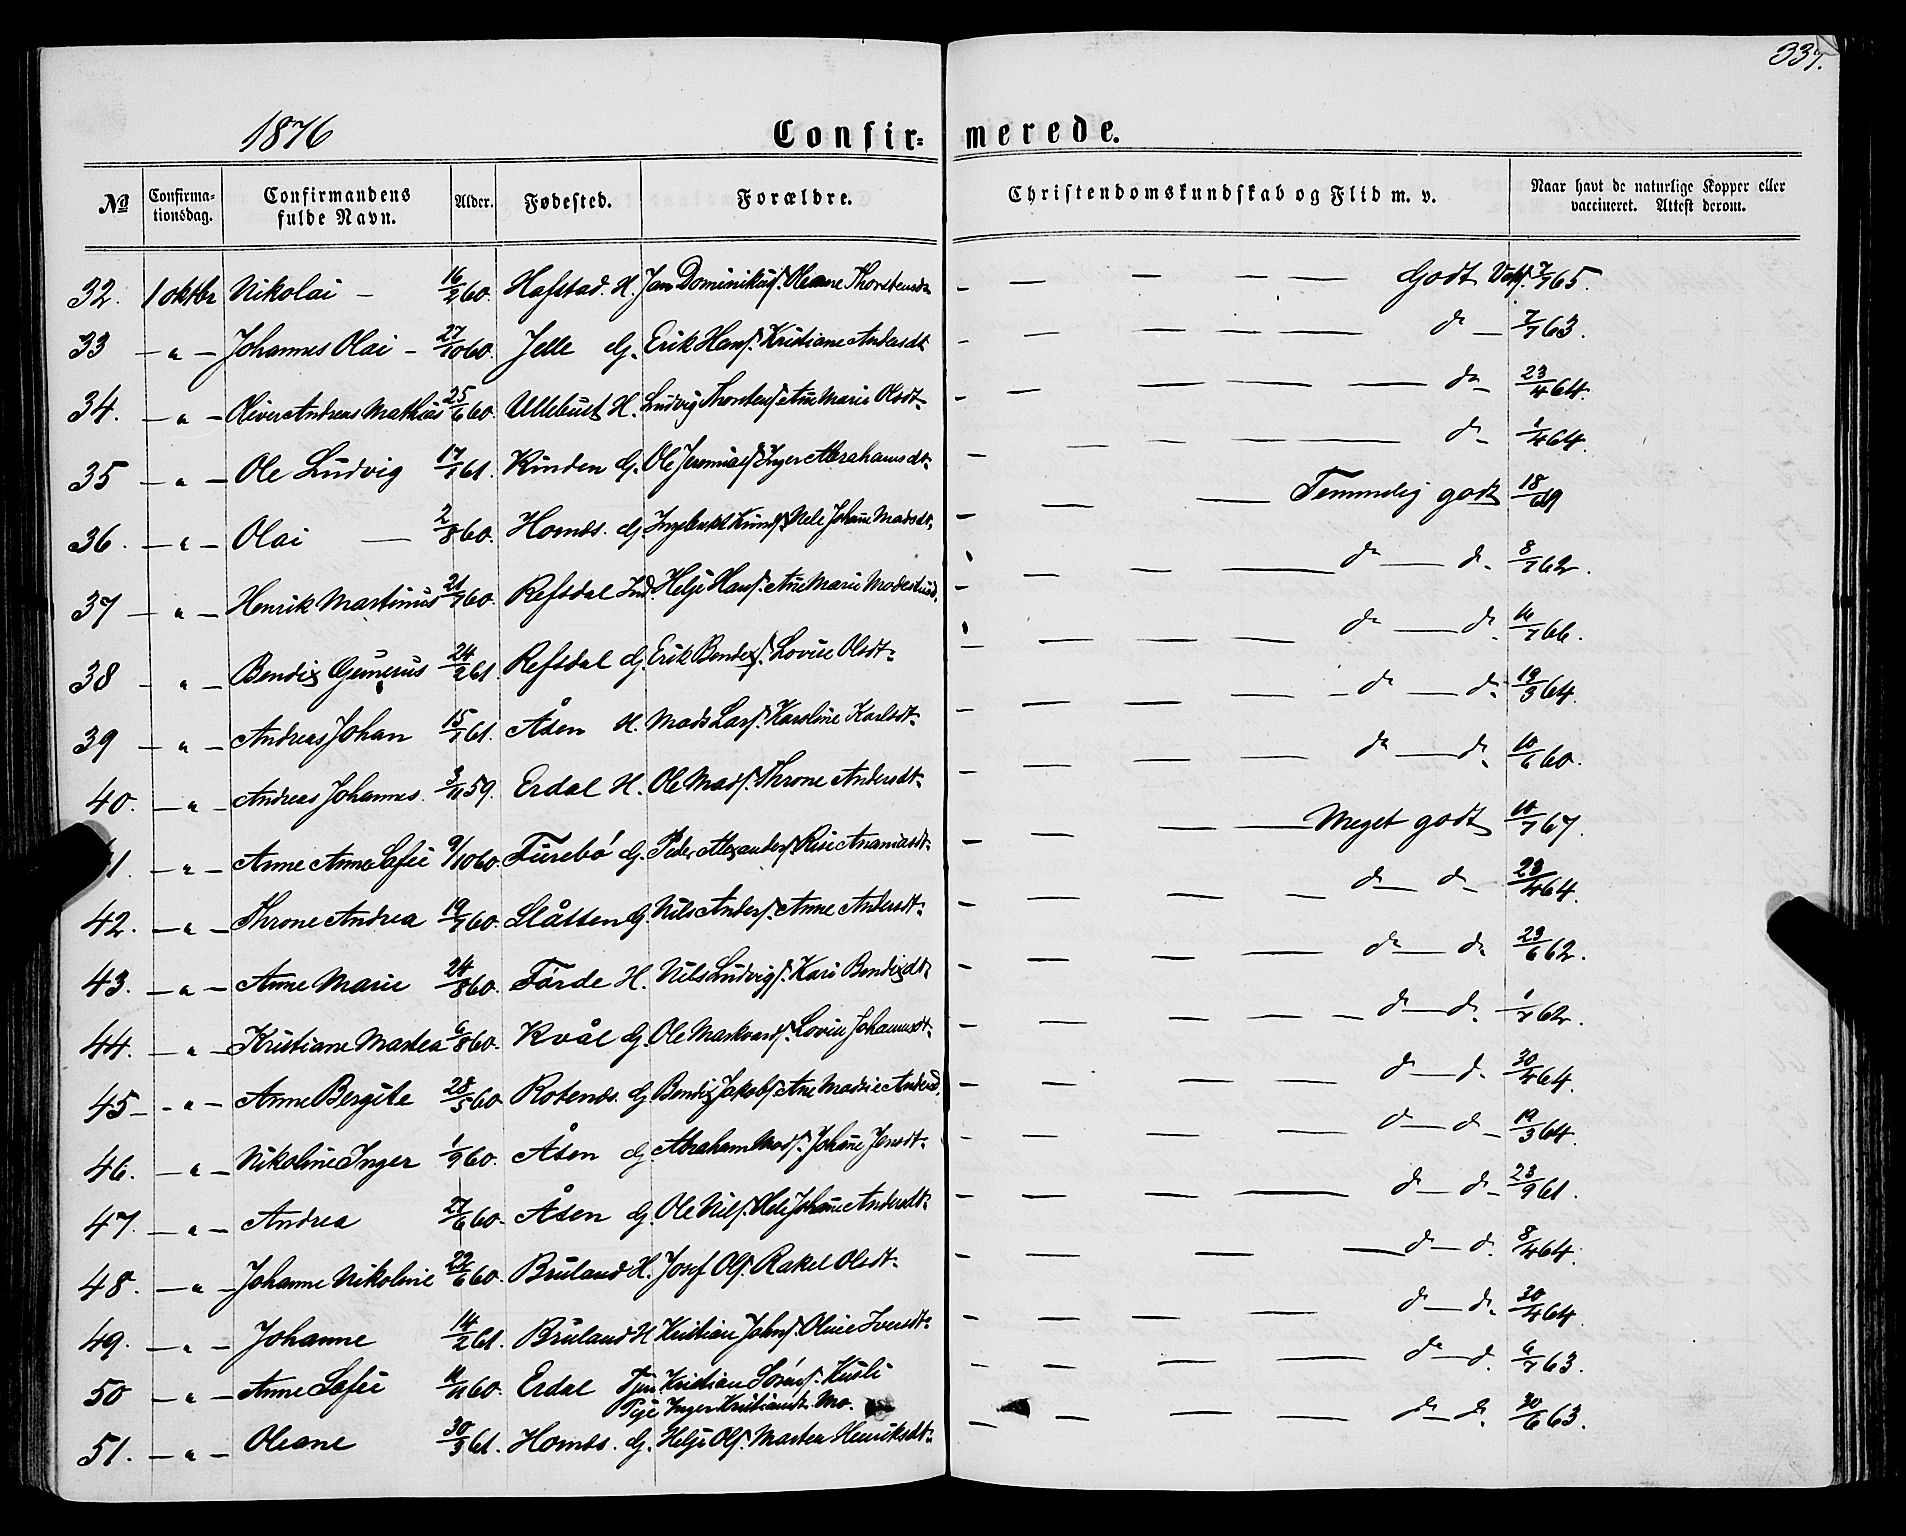 337.
1876 Confir- merede.
No Confirma-tionsdag. Confirmandens fulde Navn. Alder. Fødested. Forældre. Christendomskundskab og Flid m. v. Naar havt de naturlige Kopper eller vaccineret. Attest derom.
32. 1 oktbr Nikolai - 16/2 60. Hafstad. H. Jan Dominikusſ. Oleane - - - - - Godt 7/7 65.
33 - " - Johannes Olai - 27/10 60. Jelle G. Erik Hansſ. Kristiane Andersdt. - - - - - do - 7/7 63.
34. - " - Oliver Andreas Mathias 25/6 60. Ullebust H. Ludvig Thorstensſ. Ane Marie Olsdt. - - - - - do - 23/4 64.
35 - " - Ole Ludvig 17/1 61. Kinden G. Ole Jeremiasſ. Inger Abrahamsdt. - - - - - do - 1/4 64.
36. - " - Olai - 2/8 60. Hornds. G. Johane Madsdt. - - - Temmelig godt 18/
37 - " - Henrik Martinus 21/7 60. Refsdal Ind. Helje Hansſ. Ane Marie - - - - do - do. 8/7 62.
38 - " - Bendix Gunerus 24/2 61. Refsdal G. Erik Bendixſ. Lovise Olsdt. - - - - - do - do. 16/7 66.
39 - " - Andreas Johan 15/1 61. Åsen H. Mads Larsſ. Karoline Karlsdt. - - - - - do - do. 19/3 64.
40. - " - Andreas Johannes. 3/11 59. Erdal H. Ole Madsſ. Throne Andersdt. - - - - do - do. 10/6 60.
41 - " - Anne Anne Sofie 9/10 60. Furebø G. Peder Alexandersſ. Risi Ananiasdt. - - - - Meget godt 10/7 67.
42. - " - Throne Andrea 19/7 60. Slåtten G. Nils Andersſ. Anne Andersdt. - - - - do - do - 23/4 64.
43. - " - Anne Marie 24/8 60. Førde H. Nils Ludvigſ. Kari Bendixdt. - - - - do - do. 23/6 62.
44. - " - Kristiane Martea 6/8 60. Kvål G. Ole Markvardſ. Lovise Johannesdt. - - - - - do - do. 1/7 62.
45 - - " - Anne Bergite 28/5 60. Rotends. G. Bendix Jakobsſ. Ane - - - - do - do. 30/4 64.
46. - " - Nikoline Inger 1/9 60. Åsen G. Abraham Madsſ. Johane Jensdt. - - - - do - do - 19/3 64.
47. - " - Andrea 27/6 60. Åsen G. Ole Nilsſ. Nele Johane Andersdt. - - - - do - do - 23/9 61.
48. - " - Johanne Nikoline 22/6 60. Bruland H. Josef Olsſ. Rakel Olsdt. - - - - do - do. 8/4 64.
49. - " - Johanne 14/2 61. Bruland H. Kristian Johnsſ. Oline Iversdt. - - - - do - do. 30/4 64.
50 - " - Anne Sofie 11/11 60. Erdal Tjen. Kristian Sørensſ. Kusli - - - - do - do. 6/7 63.
Pige Inger Kristiansdt. Mo.
51. - " - Oleane 30/3 61. Hornds. G. Helje Olsſ. Marten Henriksdt. - - - - do - do. 30/6 63.